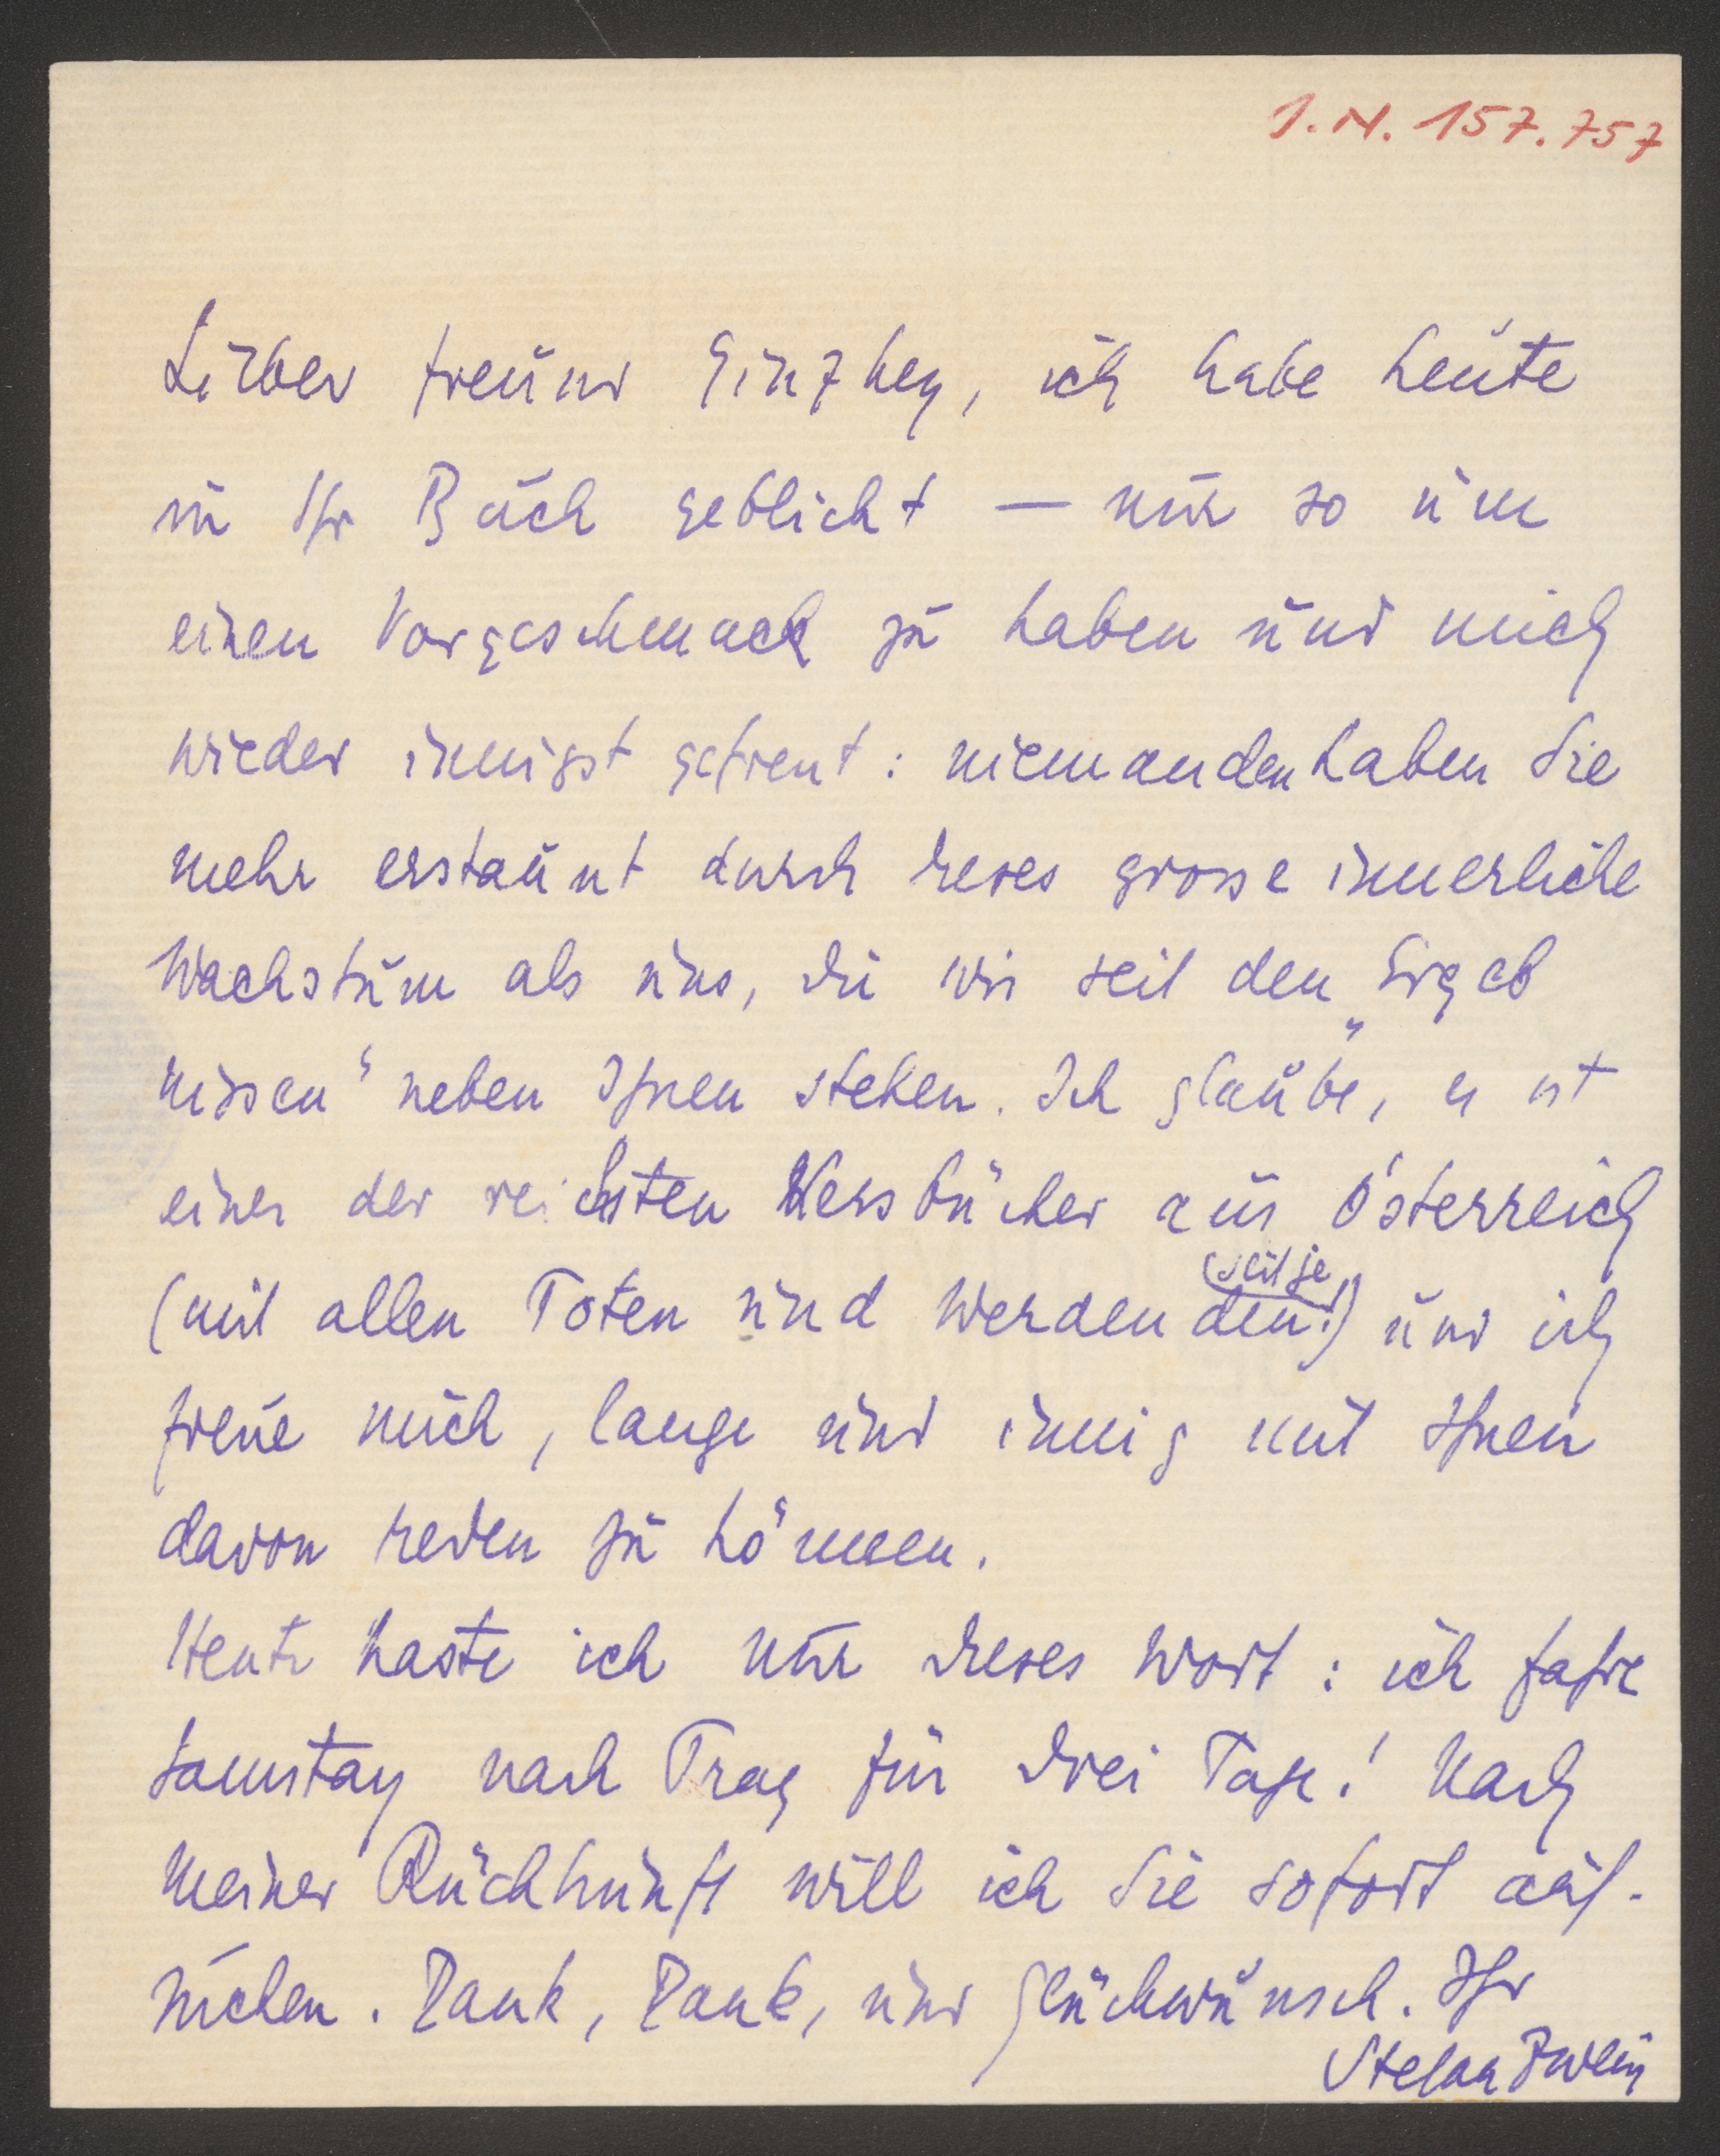 I.N. 157.757
Lieber Freund Ginzkey, ich habe heute
in Ihr Buch geblickt — nur so um
einen Vorgeschmack zu haben und mich
wieder innigst gefreut: niemanden haben Sie
mehr erstaunt durch dieses grosse innerliche
Wachstum als uns, die wir seit den „Ergeb
nissen“ neben Ihnen stehen. Ich glaube, es ist
eines der reichsten Versbücher aus Österreich
(seit je
(mit allen Toten und Werdenden!) und ich
freue mich, lange und innig mit Ihnen
davon reden zu können.
Heute haste ich nur dieses Wort: ich fahre
Samstag nach Prag für drei Tage! Nach
meiner Rückkunft will ich Sie sofort auf-
suchen. Dank, Dank, und Glückwunsch. Ihr
Stefan Zweig